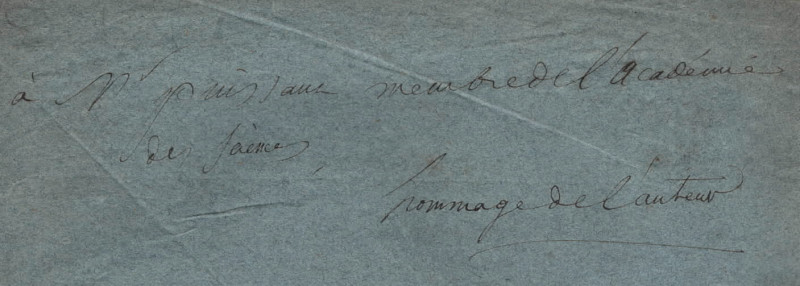 à Mr puissant membre de l'académie
des sciences
hommage de l'auteur